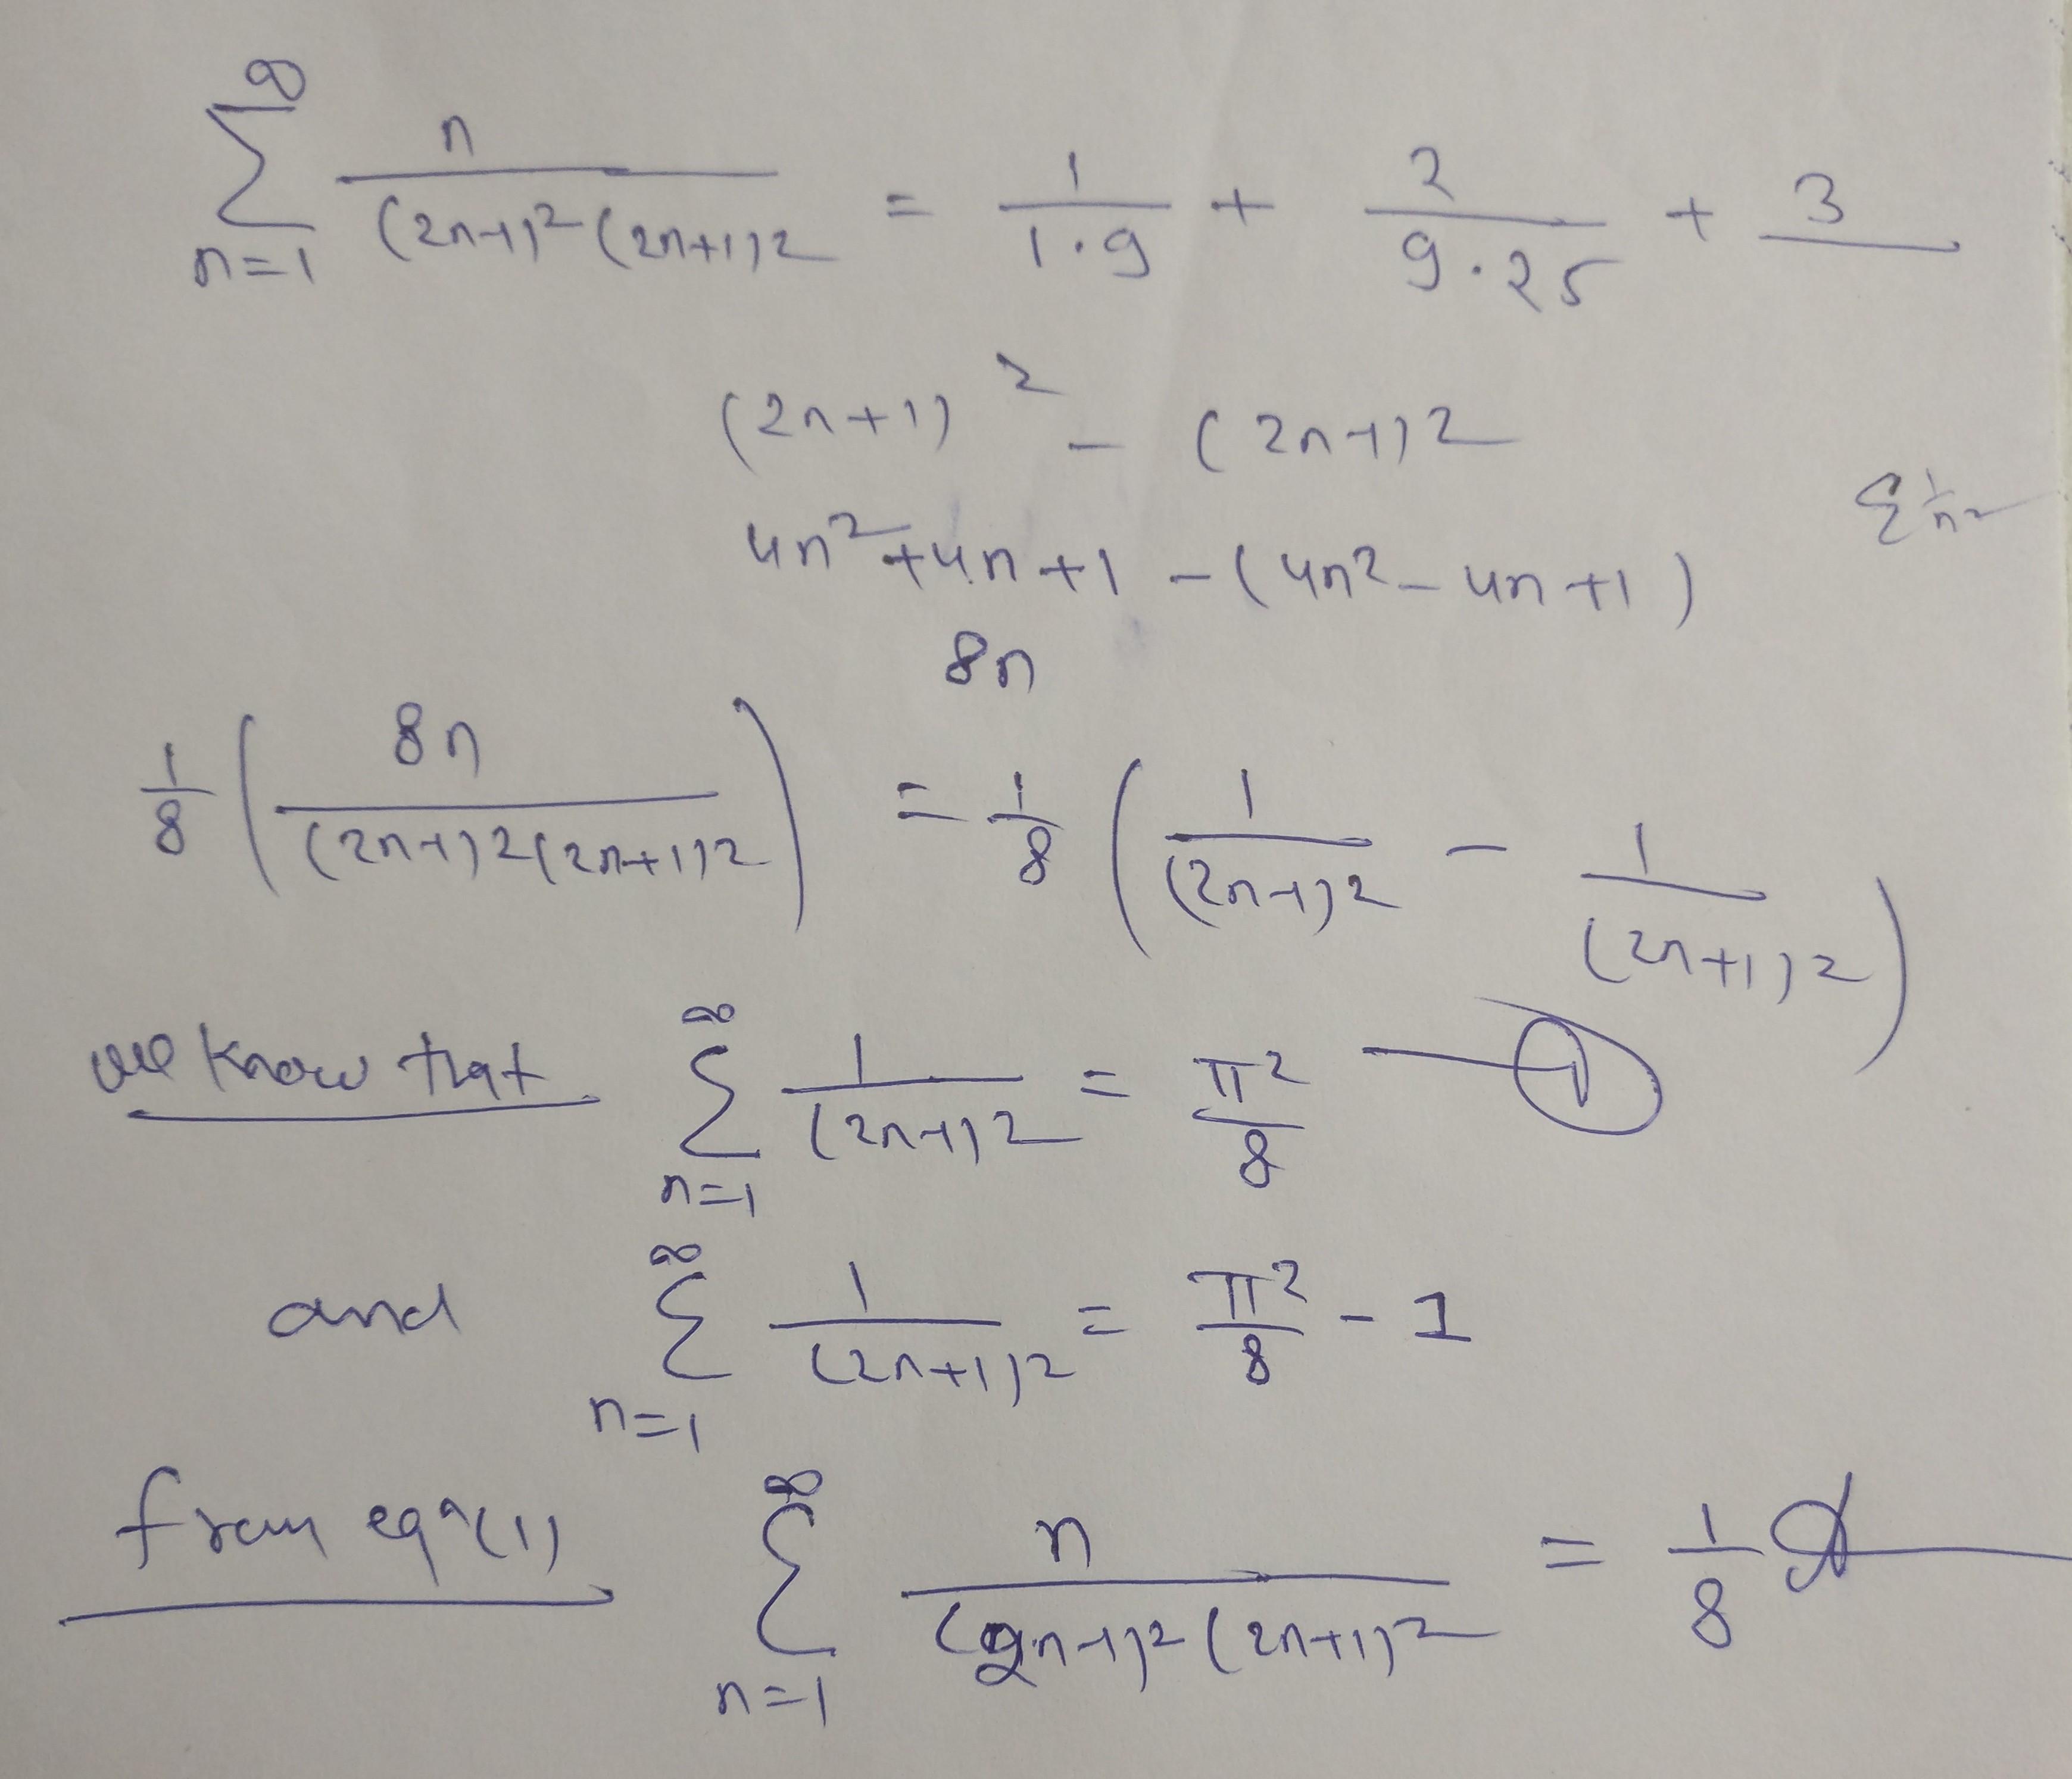 ∞
∑ n / ((2n-1)² (2n+1)²) = 1/(1·9) + 2/(9·25) + 3/
n=1
(2n+1)² - (2n-1)²
∑ 1/n²
4n²+4n+1 - (4n²-4n+1)
8n
1/8 ( 8n / ((2n-1)²(2n+1)²) ) = 1/8 ( 1/(2n-1)² - 1/(2n+1)² )
we know that ∞∑n=1 1/(2n-1)² = π²/8 — ①
and ∞∑n=1 1/(2n+1)² = π²/8 - 1
from eqⁿ(1) ∞∑n=1 n / ((2n-1)² (2n+1)²) = 1/8